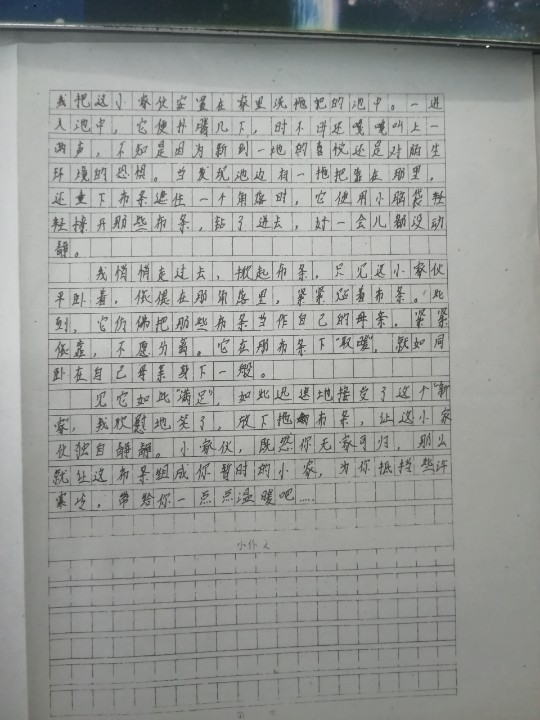 我把这小家伙安置在家里洗拖把的池中。一进
入池中，它便扑腾几下，时不时还嘎嘎叫上一
两声，不知是因为新到一地的喜悦还是对陌生
环境的恐惧。当发现池边有一拖把靠在那里，
还垂下布条遮住一个角落时，它便用小脑袋轻
轻撩开那些布条，钻了进去，好一会儿都没动
静。
我悄悄走过去，掀起布条，只见这小家伙
平卧着，依偎在那角落里，紧紧贴着布条。此
刻，它仿佛把那些布条当作自己的母亲，紧紧
依靠，不愿分离。它在那布条下"取暖"，就如同
卧在自己母亲身下一般。
见它如此"满足"，如此迅速地接受了这个"新
家，我欣慰地笑了，放下拖布条，让这小家
伙独自静静。小家伙，既然你无家可归，那么
就让这布条组成你暂时的小家，为你抵挡些许
寒冷，带给你一点点温暖吧……
小作文